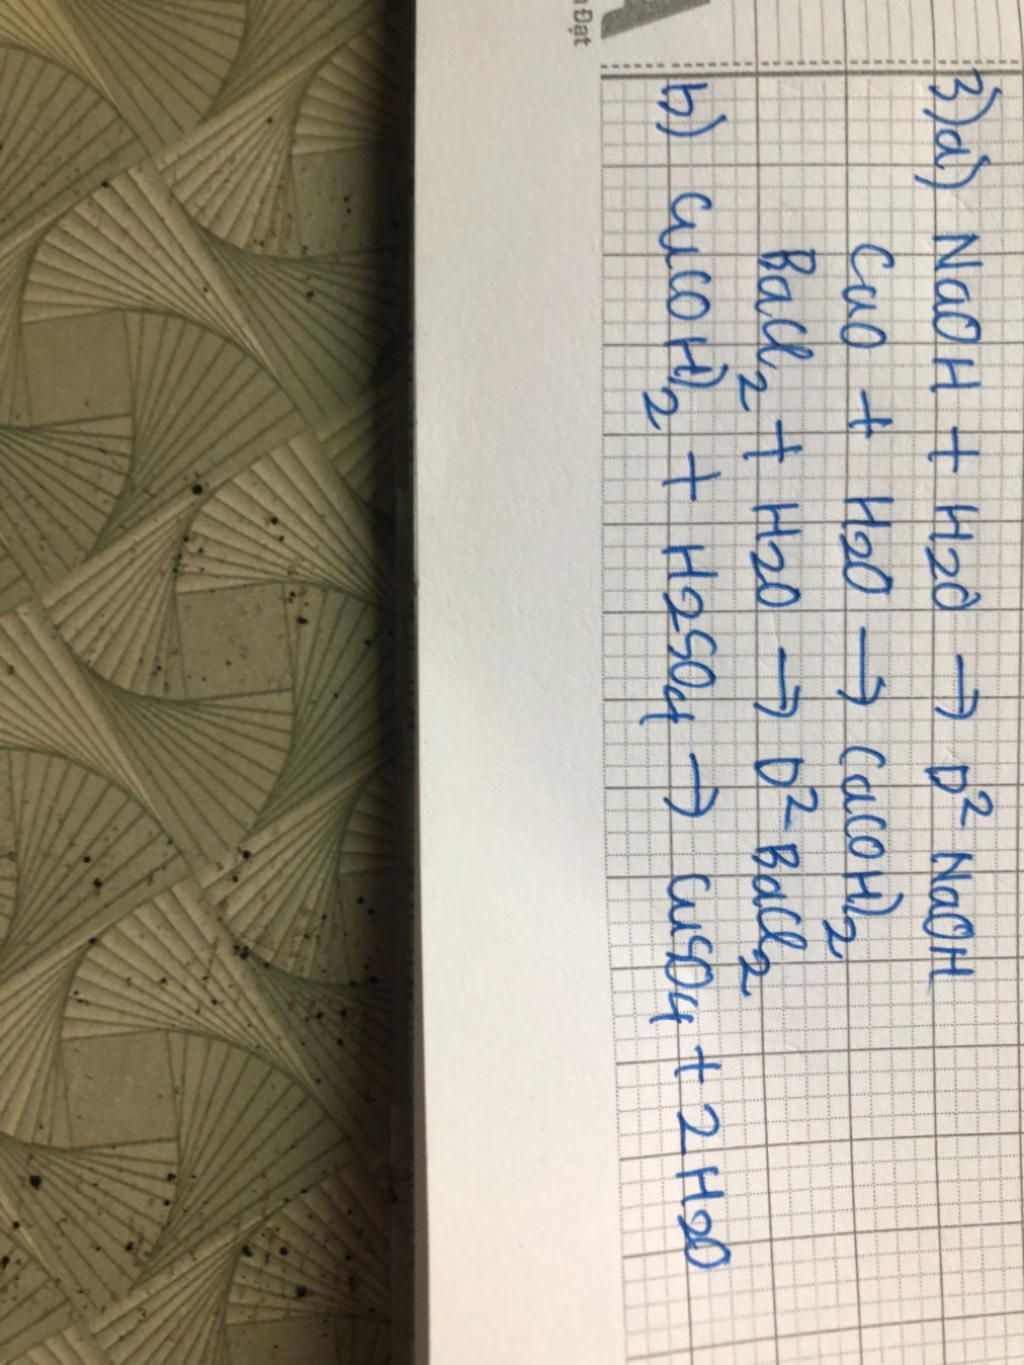 Đạt
3) a) NaOH + H2O → D² NaOH
CaO + H2O → Ca(OH)2
BaCl2 + H2O → D² BaCl2
b) Cu(OH)2 + H2SO4 → CuSO4 + 2H2O